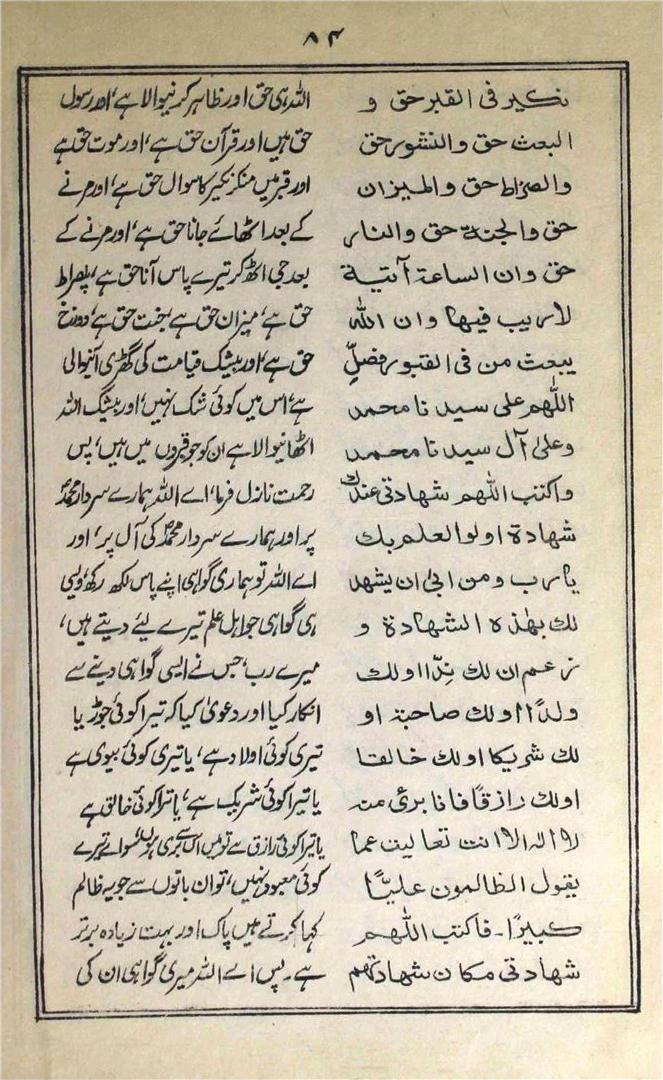 ۸۴
نکیر فی القبر حق و
البعث حق والنشور حق
والصراط حق والمیزان
حق والجنۃ حق والنار
حق وان الساعۃ آتیۃ
لاریب فیھا وان اللہ
یبعث من فی القبور فصلِّ
اللّٰھم علی سیدنا محمد
وعلی آل سیدنا محمد
واکتب اللّٰھم شھادتی عندک
شھادۃ اولوا العلم بک
یارب ومن ابیٰ ان یشھد
لک بھٰذہ الشھادۃ و
زعم ان لک نِدّا اولک
ولدًا اولک صاحبۃ او
لک شریکا اولک خالقا
اولک رازقًا فانا بریٔ منہ
لا الہ الا انت تعالیت عما
یقول الظالمون علیًّا
کبیرًا۔ فاکتب اللّٰھم
شھادتی مکان شھادتھم
اللہ ہی حق اور ظاہر کرنیوالا ہے، اور رسول
حق ہیں اور قرآن حق ہے، اور موت حق ہے
اور قبر میں منکر نکیر کا سوال حق ہے، اور مرنے
کے بعد اٹھائے جانا حق ہے، اور مرنے کے
بعد جی اٹھ کر تیرے پاس آنا حق ہے، پلصراط
حق ہے، میزان حق ہے، جنت حق ہے، دوزخ
حق ہے، اور بیشک قیامت کی گھڑی آنیوالی
ہے، اس میں کوئی شک نہیں، اور بیشک اللہ
اٹھانیوالا ہے ان کو جو قبروں میں ہیں، پس
رحمت نازل فرما، اے اللہ ہمارے سردار محمدؐ
پر اور ہمارے سردار محمدؐ کی آل پر، اور
اے اللہ تو ہماری گواہی اپنے پاس لکھ رکھ، ویسی
ہی گواہی جو اہل علم تیرے لیئے دیتے ہیں،
میرے رب، جس نے ایسی گواہی دینے سے
انکار کیا اور دعویٰ کیا کہ تیرا کوئی جوڑ یا
تیری کوئی اولاد ہے، یا تیری کوئی بیوی ہے
یا تیرا کوئی شریک ہے، یا ترا کوئی خالق ہے
یا تیرا کوئی رازق ہے تو میں اس سے بری ہوں، سوائے تیرے
کوئی معبود نہیں، تو ان باتوں سے جو یہ ظالم
کہا کرتے ہیں پاک اور بہت زیادہ برتر
ہے۔ پس اے اللہ میری گواہی ان کی